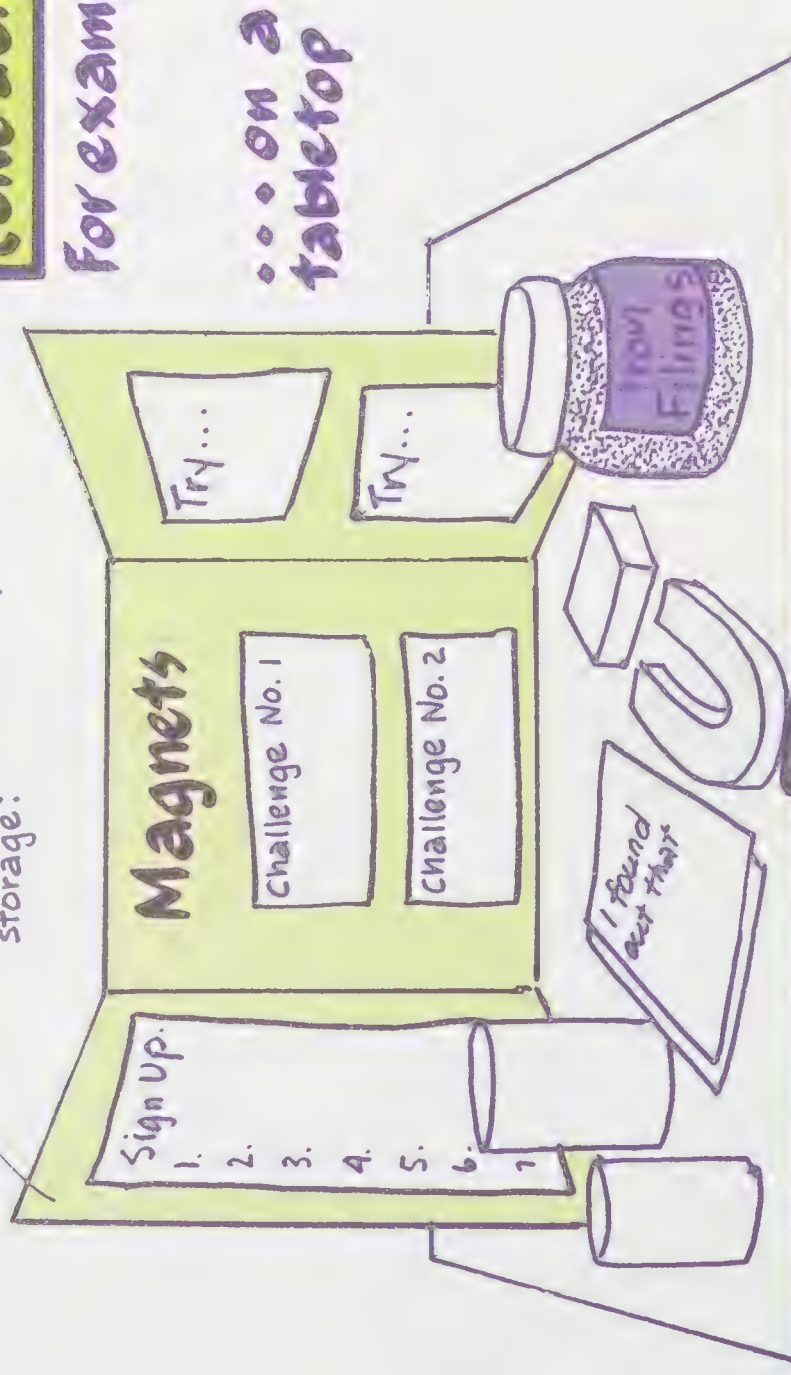 storage:
For exam
...on a
tabletop
Sign Up.
1.
2.
3.
4.
5.
6.
7
Magnets
Challenge No. 1
Challenge No. 2
Try...
Try...
I found
out that
Iron
Filings